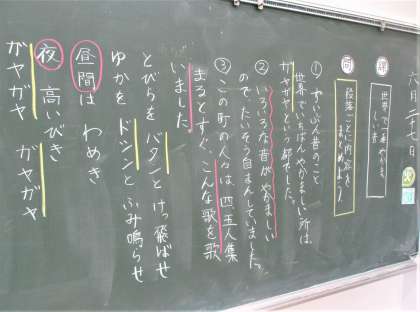 月二十日
火
課
世界で一番やかましい音
問
段落ごとに内容をまとめよう。
① ずいぶん昔のこと
世界でいちばんやかましい所は、
ガヤガヤといった都でした。
② いろいろな音がやかましい
ので、たいそう自まんしていました。
③ この町の人々は四五人集
まるとすぐ、こんな歌を歌
いました
とびらを バタンと けっ飛ばせ
ゆかを ドシンと ふみ鳴らせ
昼間は わめき
夜 高いびき
ガヤガヤ ガヤガヤ